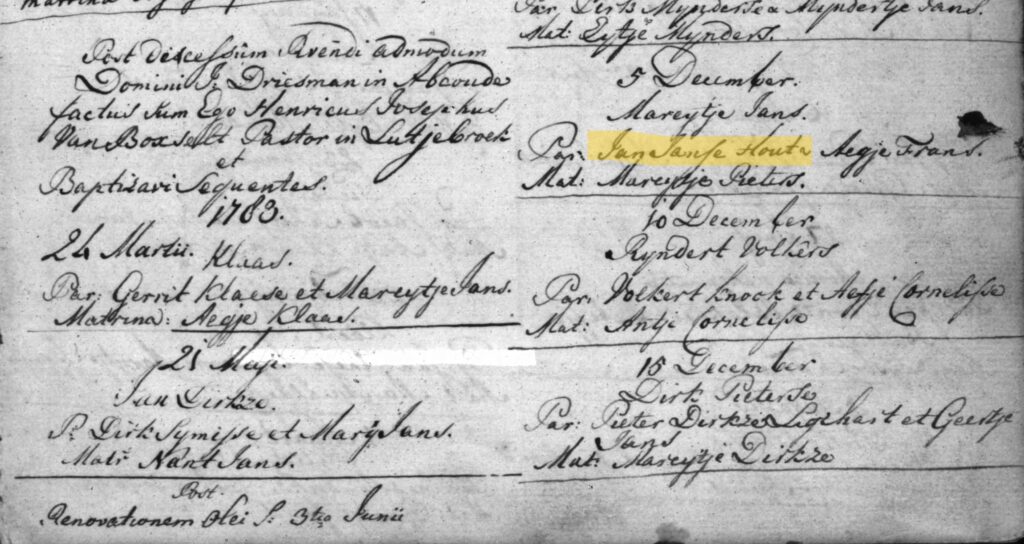 Post decessum Rvendi admodum
Domini J: Driesman in Abcoude
factus sum Ego Henricus Josephus
Van Boxselt Pastor in Lutjebroek
et
Baptisavi Sequentes.
1783.
24 Martii. Klaas.
Par: Gerrit Klaese et Mareytje Jans.
Matrina: Aegje Klaas.
21 Maji.
Jan Dirkze.
P: Dirk Symisse et Marij Jans.
Matr: Nant Jans.
Post
Renovationem Olei S: 3tia Junii
Par: Dirk Mynderse & Myndertje Jans.
Mat: Eytje Mynders.
5 December.
Mareytje Jans.
Par: Jan Janse Hout & Aegje Frans.
Mat: Mareytje Pieters.
10 December
Ryndert Volkers
Par: Volkert Knook et Aefje Cornelisse
Mat: Antje Cornelisse
15 December
Dirk Pieterse
Par: Pieter Dirkze Ligthart et Geertje
Jans
Mat: Mareytje Dirkze